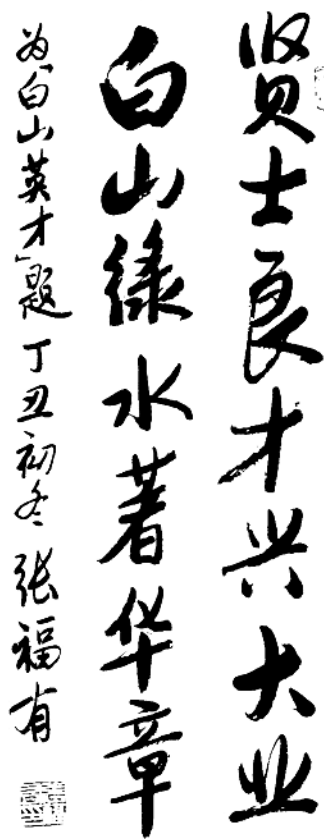 贤士良才兴大业
白山绿水著华章
为“白山英才”题 丁丑初冬 张福有